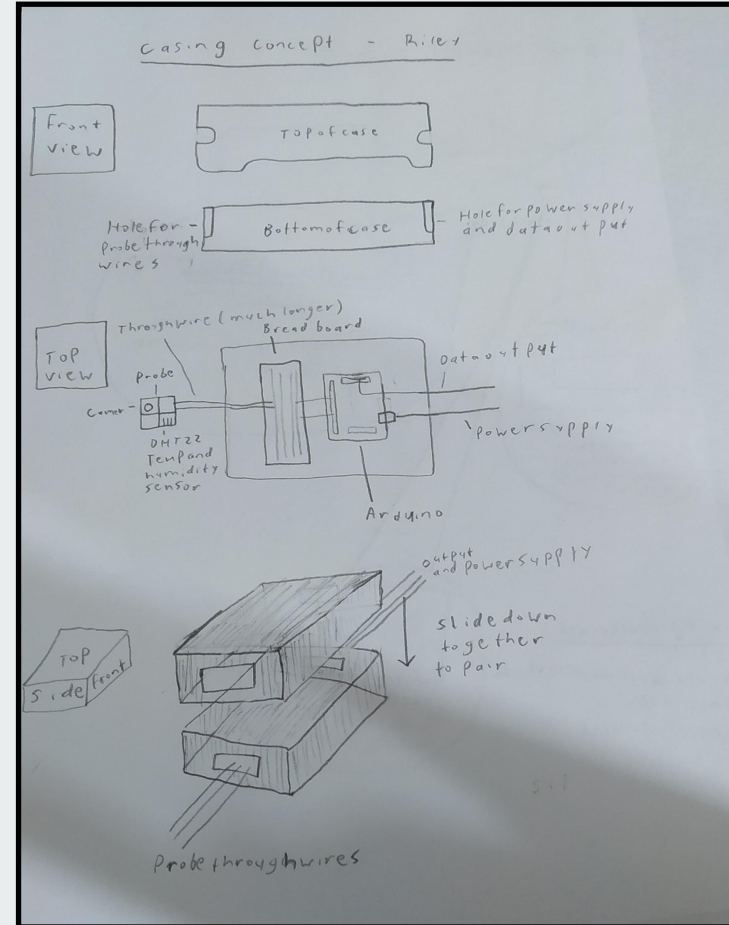 Casing Concept - Riley
Front
view
Top of case
Hole for
probe through
wires
Bottom of case
Hole for power supply
and data out put
Top
view
Through wire (much longer)
Bread board
Data out put
Probe
DHT22
Temp and
humidity
sensor
Power supply
Arduino
output
and power supply
slide down
together
to pair
Top
Side
Front
Probe through wires